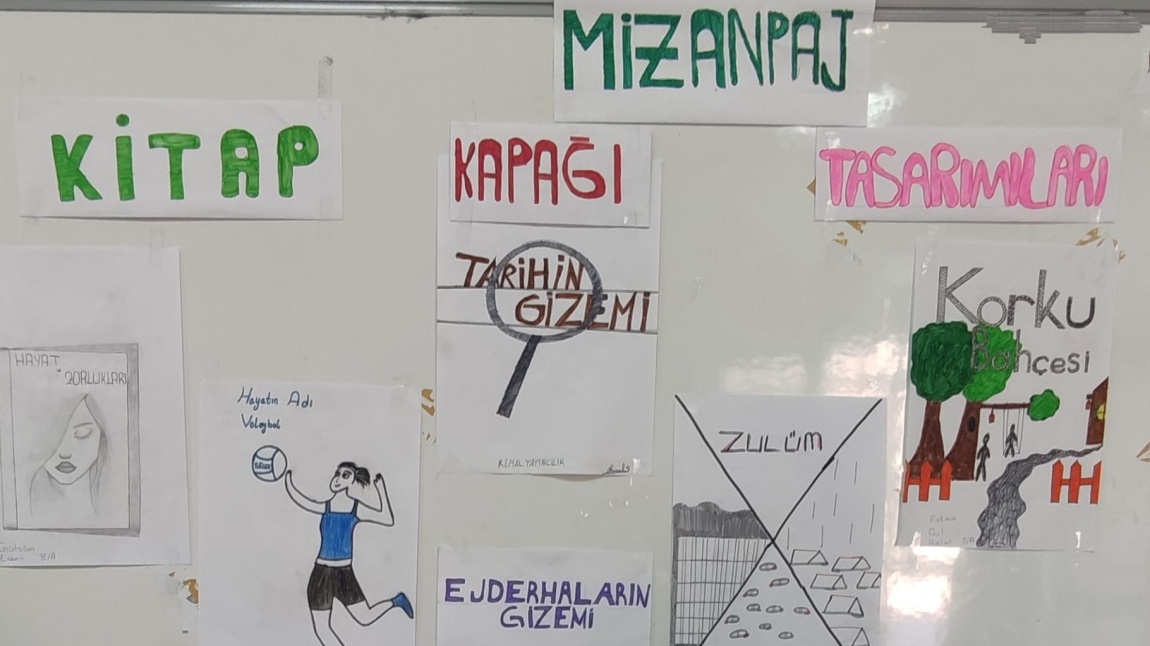 MİZANPAJ
KİTAP
KAPAĞI
TASARIMLARI
HAYAT
ZORLUKLARI
8/A
Hayatın Adı
Voleybol
TARİHİN
GİZEMİ
KEMAL YAYINCILIK
EJDERHALARIN
GİZEMİ
ZULÜM
Korku
Bahçesi
Fatma